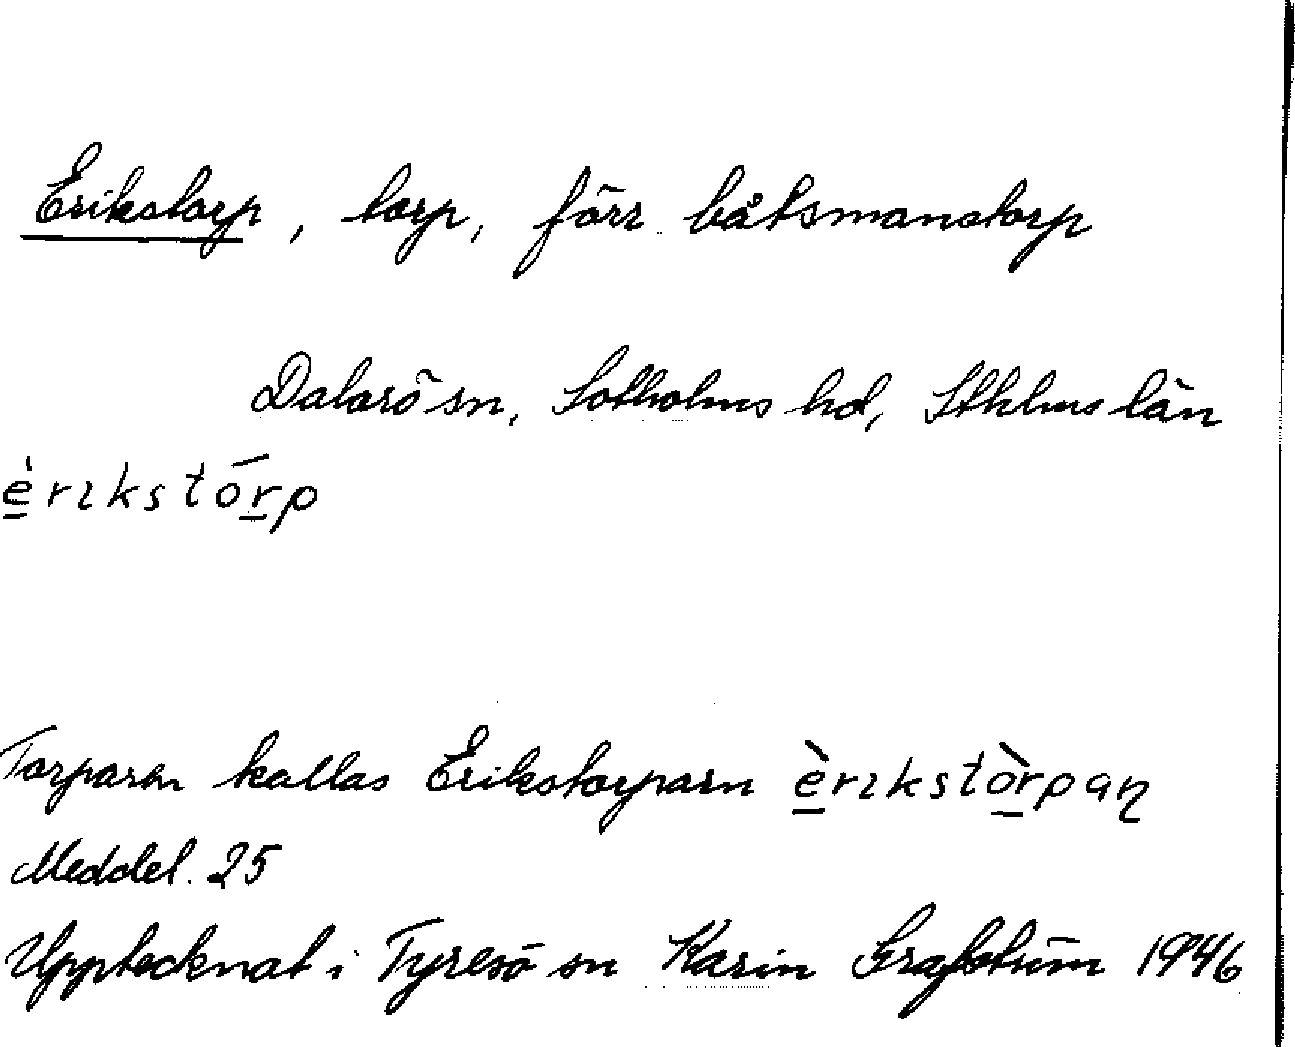 Erikstorp, torp, förr båtsmanstorp
Dalarö sn, Sotholms hd, Sthlms län
e̲̍rɪkstōr̲p
Torparen kallas Erikstorparn è̲rɪkstòr̲paɳ
Meddel. 25
Upptecknat i Tyresö sn Karin Grafström 1946